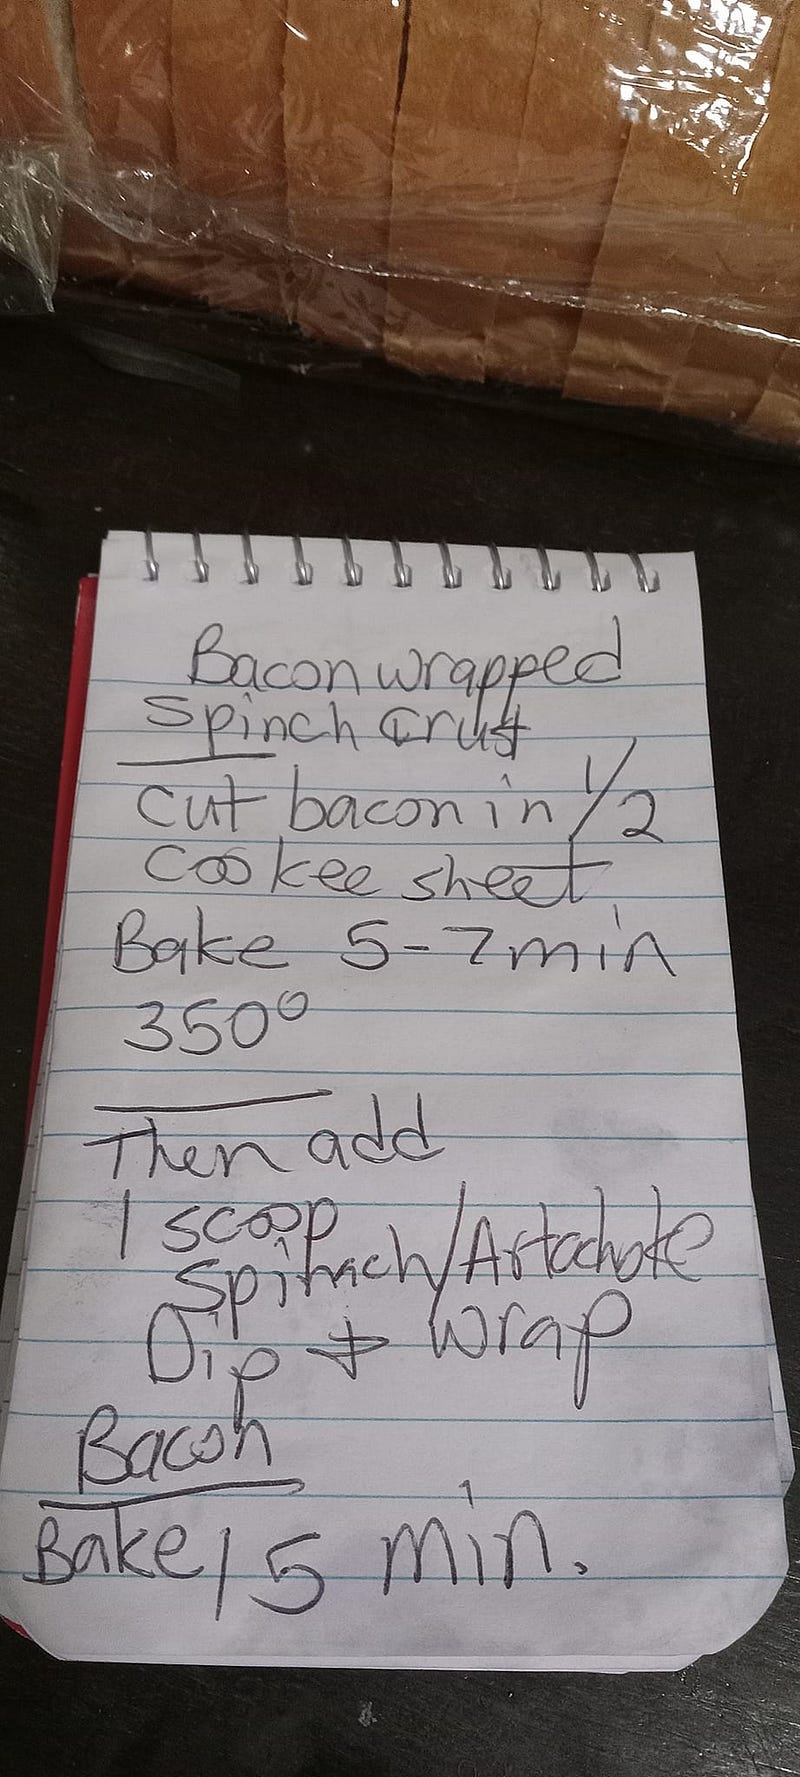 Bacon wrapped
Spinch Crust
Cut bacon in 1/2
Cookee sheet
Bake 5-7 min
350°
Then add
1 scoop
Spinach/Artachoke
Dip + wrap
Bacon
Bake 15 min.